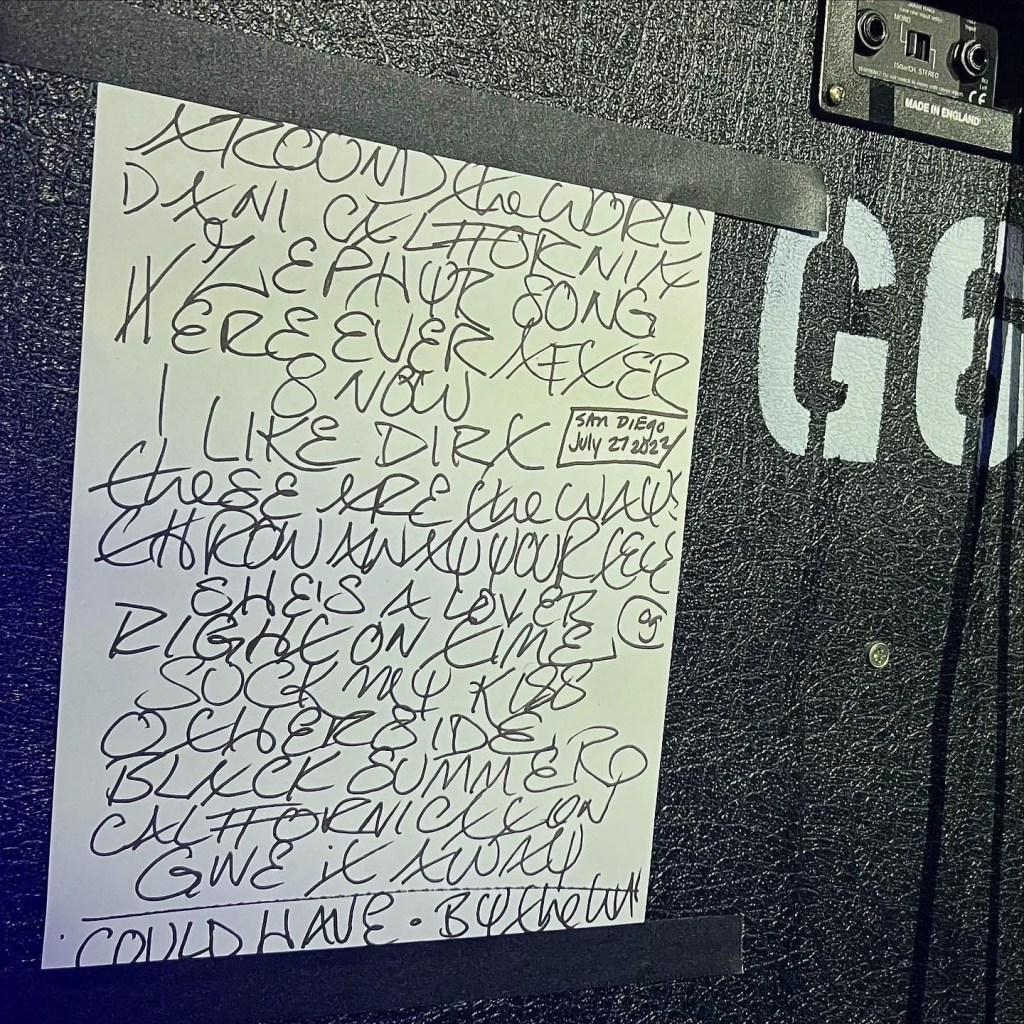 AROUND the WORLD
DANI CALIFORNIA
ZEPHYR SONG
HERE EVER AFTER
8 NOW
I LIKE DIRT
SAN DIEGO
July 27 2022
these ARE the WAYS
THROW AWAY YOUR TELE
SHE'S A LOVER
RIGHT ON TIME
SUCK MY KISS
OTHERSIDE
BLACK SUMMER
CALIFORNICATION
GIVE iT AWAY
COULD HAVE • BY the WA
MONO
150w/CH. STEREO
MADE IN ENGLAND
CE
GO